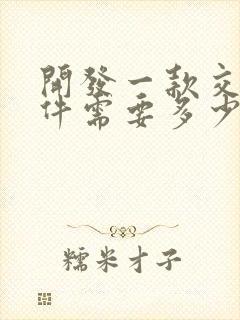 開發一款交
件需要多少
糯米才子